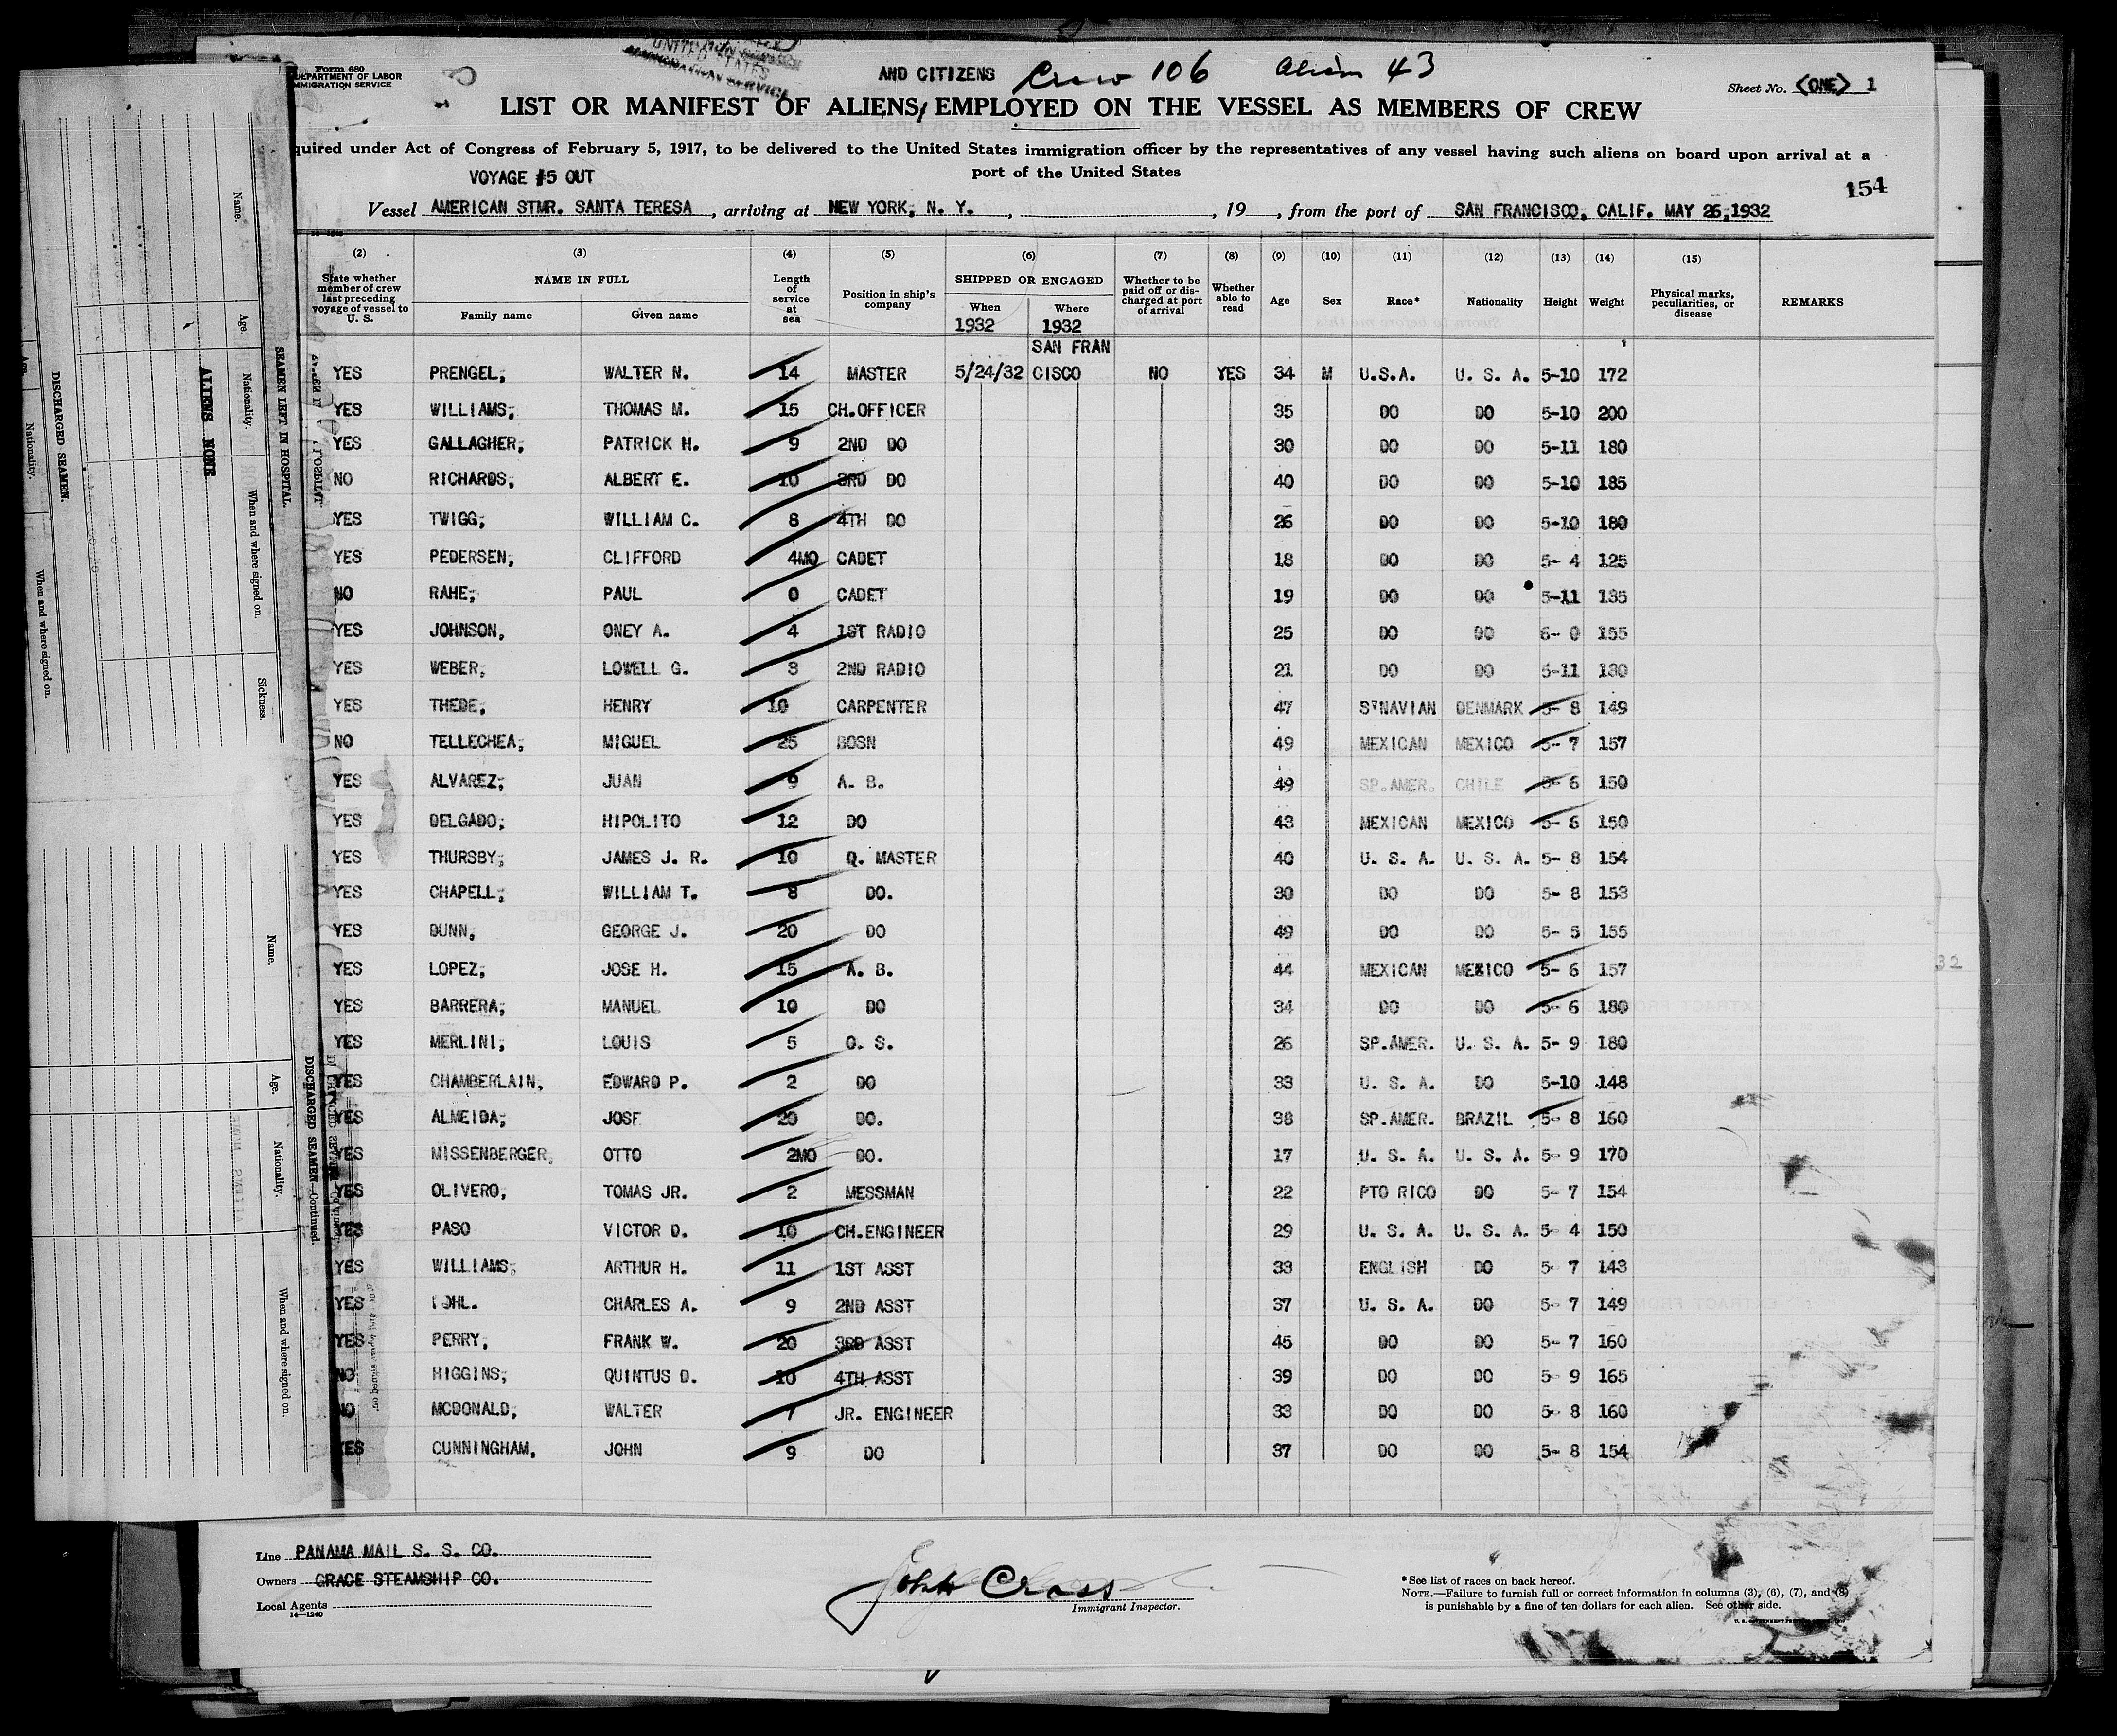 Form 680
DEPARTMENT OF LABOR
IMMIGRATION SERVICE
UNITED STATES
IMMIGRATION SERVICE
AND CITIZENS Crew 106 Alien 43
Sheet No. (ONE) 1
LIST OR MANIFEST OF ALIENS/ EMPLOYED ON THE VESSEL AS MEMBERS OF CREW
quired under Act of Congress of February 5, 1917, to be delivered to the United States immigration officer by the representatives of any vessel having such aliens on board upon arrival at a
port of the United States
VOYAGE #5 OUT
154
Vessel AMERICAN STMR. SANTA TERESA, arriving at NEW YORK, N. Y., , 19 , from the port of SAN FRANCISCO, CALIF. MAY 26,1932
(2) (3) (4) (5) (6) (7) (8) (9) (10) (11) (12) (13) (14) (15)
State whether member of crew last preceding voyage of vessel to U. S.
NAME IN FULL
Family name Given name
Length of service at sea
Position in ship's company
SHIPPED OR ENGAGED
When Where
1932 1932
Whether to be paid off or discharged at port of arrival
Whether able to read
Age Sex Race* Nationality Height Weight
Physical marks, peculiarities, or disease
REMARKS
SAN FRAN
YES PRENGEL, WALTER N. 14 MASTER 5/24/32 CISCO NO YES 34 M U.S.A. U. S. A. 5-10 172
YES WILLIAMS, THOMAS M. 15 CH.OFFICER 35 DO DO 5-10 200
YES GALLAGHER, PATRICK H. 9 2ND DO 30 DO DO 5-11 180
NO RICHARDS, ALBERT E. 10 3RD DO 40 DO DO 5-10 185
YES TWIGG, WILLIAM C. 8 4TH DO 26 DO DO 5-10 180
YES PEDERSEN, CLIFFORD 4MO CADET 18 DO DO 5- 4 125
NO RAHE, PAUL 0 CADET 19 DO DO 5-11 135
YES JOHNSON, ONEY A. 4 1ST RADIO 25 DO DO 6- 0 155
YES WEBER, LOWELL G. 3 2ND RADIO 21 DO DO 5-11 130
YES THEDE, HENRY 10 CARPENTER 47 S'NAVIAN DENMARK 5- 8 149
NO TELLECHEA, MIGUEL 25 BOSN 49 MEXICAN MEXICO 5- 7 157
YES ALVAREZ, JUAN 9 A. B. 49 SP.AMER. CHILE 5- 6 150
YES DELGADO, HIPOLITO 12 DO 43 MEXICAN MEXICO 5- 6 150
YES THURSBY, JAMES J. R. 10 Q. MASTER 40 U. S. A. U. S. A. 5- 8 154
YES CHAPELL, WILLIAM T. 8 DO. 30 DO DO 5- 8 153
YES DUNN, GEORGE J. 20 DO 49 DO DO 5- 5 155
YES LOPEZ, JOSE H. 15 A. B. 44 MEXICAN MEXICO 5- 6 157
YES BARRERA, MANUEL 10 DO 34 DO DO 5- 6 180
YES MERLINI, LOUIS 5 O. S. 26 SP.AMER. U. S. A. 5- 9 180
YES CHAMBERLAIN, EDWARD P. 2 DO 33 U. S. A. DO 5-10 148
YES ALMEIDA, JOSE 20 DO. 38 SP.AMER. BRAZIL 5- 8 160
YES MISSENBERGER, OTTO 2MO DO. 17 U. S. A. U. S. A. 5- 9 170
YES OLIVERO, TOMAS JR. 2 MESSMAN 22 PTO RICO DO 5- 7 154
YES PASO VICTOR D. 10 CH.ENGINEER 29 U. S. A. U. S. A. 5- 4 150
YES WILLIAMS, ARTHUR H. 11 1ST ASST 33 ENGLISH DO 5- 7 143
YES CHARLES A. 9 2ND ASST 37 U. S. A. DO 5- 7 149
YES PERRY, FRANK W. 20 3RD ASST 45 DO DO 5- 7 160
NO HIGGINS, QUINTUS D. 10 4TH ASST 39 DO DO 5- 9 165
NO MCDONALD, WALTER 7 JR. ENGINEER 33 DO DO 5- 8 160
YES CUNNINGHAM, JOHN 9 DO 37 DO DO 5- 8 154
Line PANAMA MAIL S. S. CO.
Owners GRACE STEAMSHIP CO.
Local Agents
14—1240
John Cross
Immigrant Inspector.
*See list of races on back hereof.
NOTE.—Failure to furnish full or correct information in columns (3), (6), (7), and (8)
is punishable by a fine of ten dollars for each alien. See other side.
SEAMEN LEFT IN HOSPITAL.
Name. Age. Nationality. When and where signed on. Sickness.
ALIENS NONE
DISCHARGED SEAMEN.
Age. Nationality. When and where signed on.
DISCHARGED SEAMEN—Continued.
Name. Age. Nationality. When and where signed on.
32